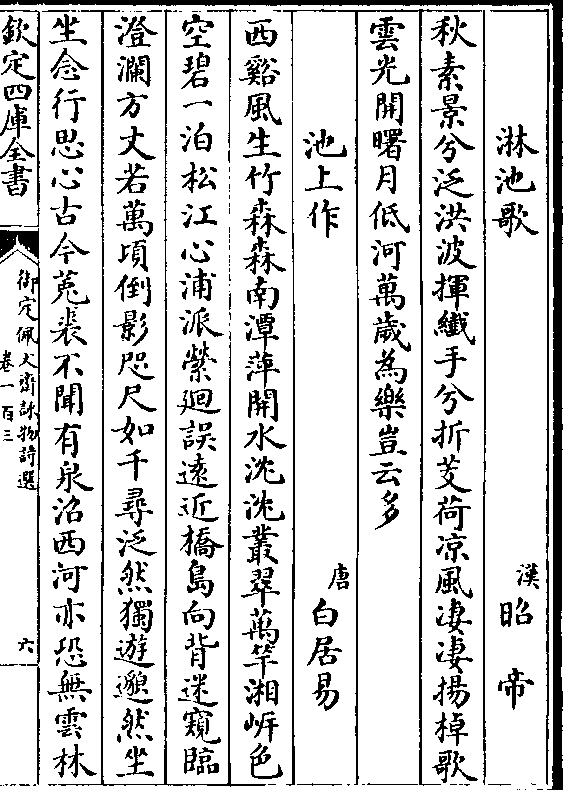 淋池歌 漢 昭帝
秋素景兮泛洪波揮纖手兮折芰荷涼風凄凄揚棹歌
雲光開曙月低河萬歲為樂豈云多
池上作 唐 白居易
西谿風生竹森森南潭萍開水沈沈叢翠萬竿湘岸色
空碧一泊松江心浦派縈迴誤遠近橋島向背迷窺臨
澄瀾方丈若萬頃倒影咫尺如千尋泛然獨遊邈然坐
坐念行思心古今菟裘不聞有泉沼西河亦恐無雲林
欽定四庫全書
御定佩文齋詠物詩選
卷一百三
六